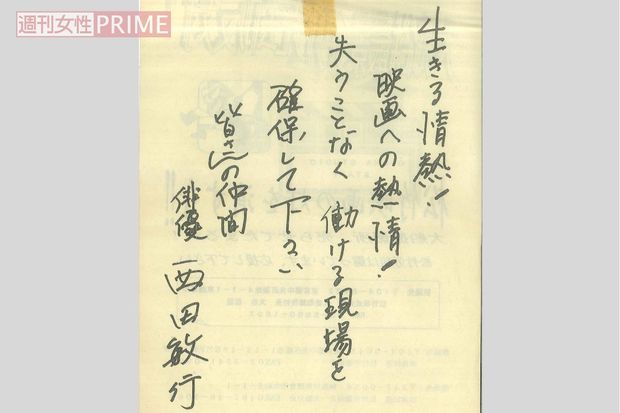 週刊女性PRIME
生きる情熱!
映画への熱情!
失うことなく 働ける現場を
確保して下さい
皆さんの仲間
俳優 西田敏行